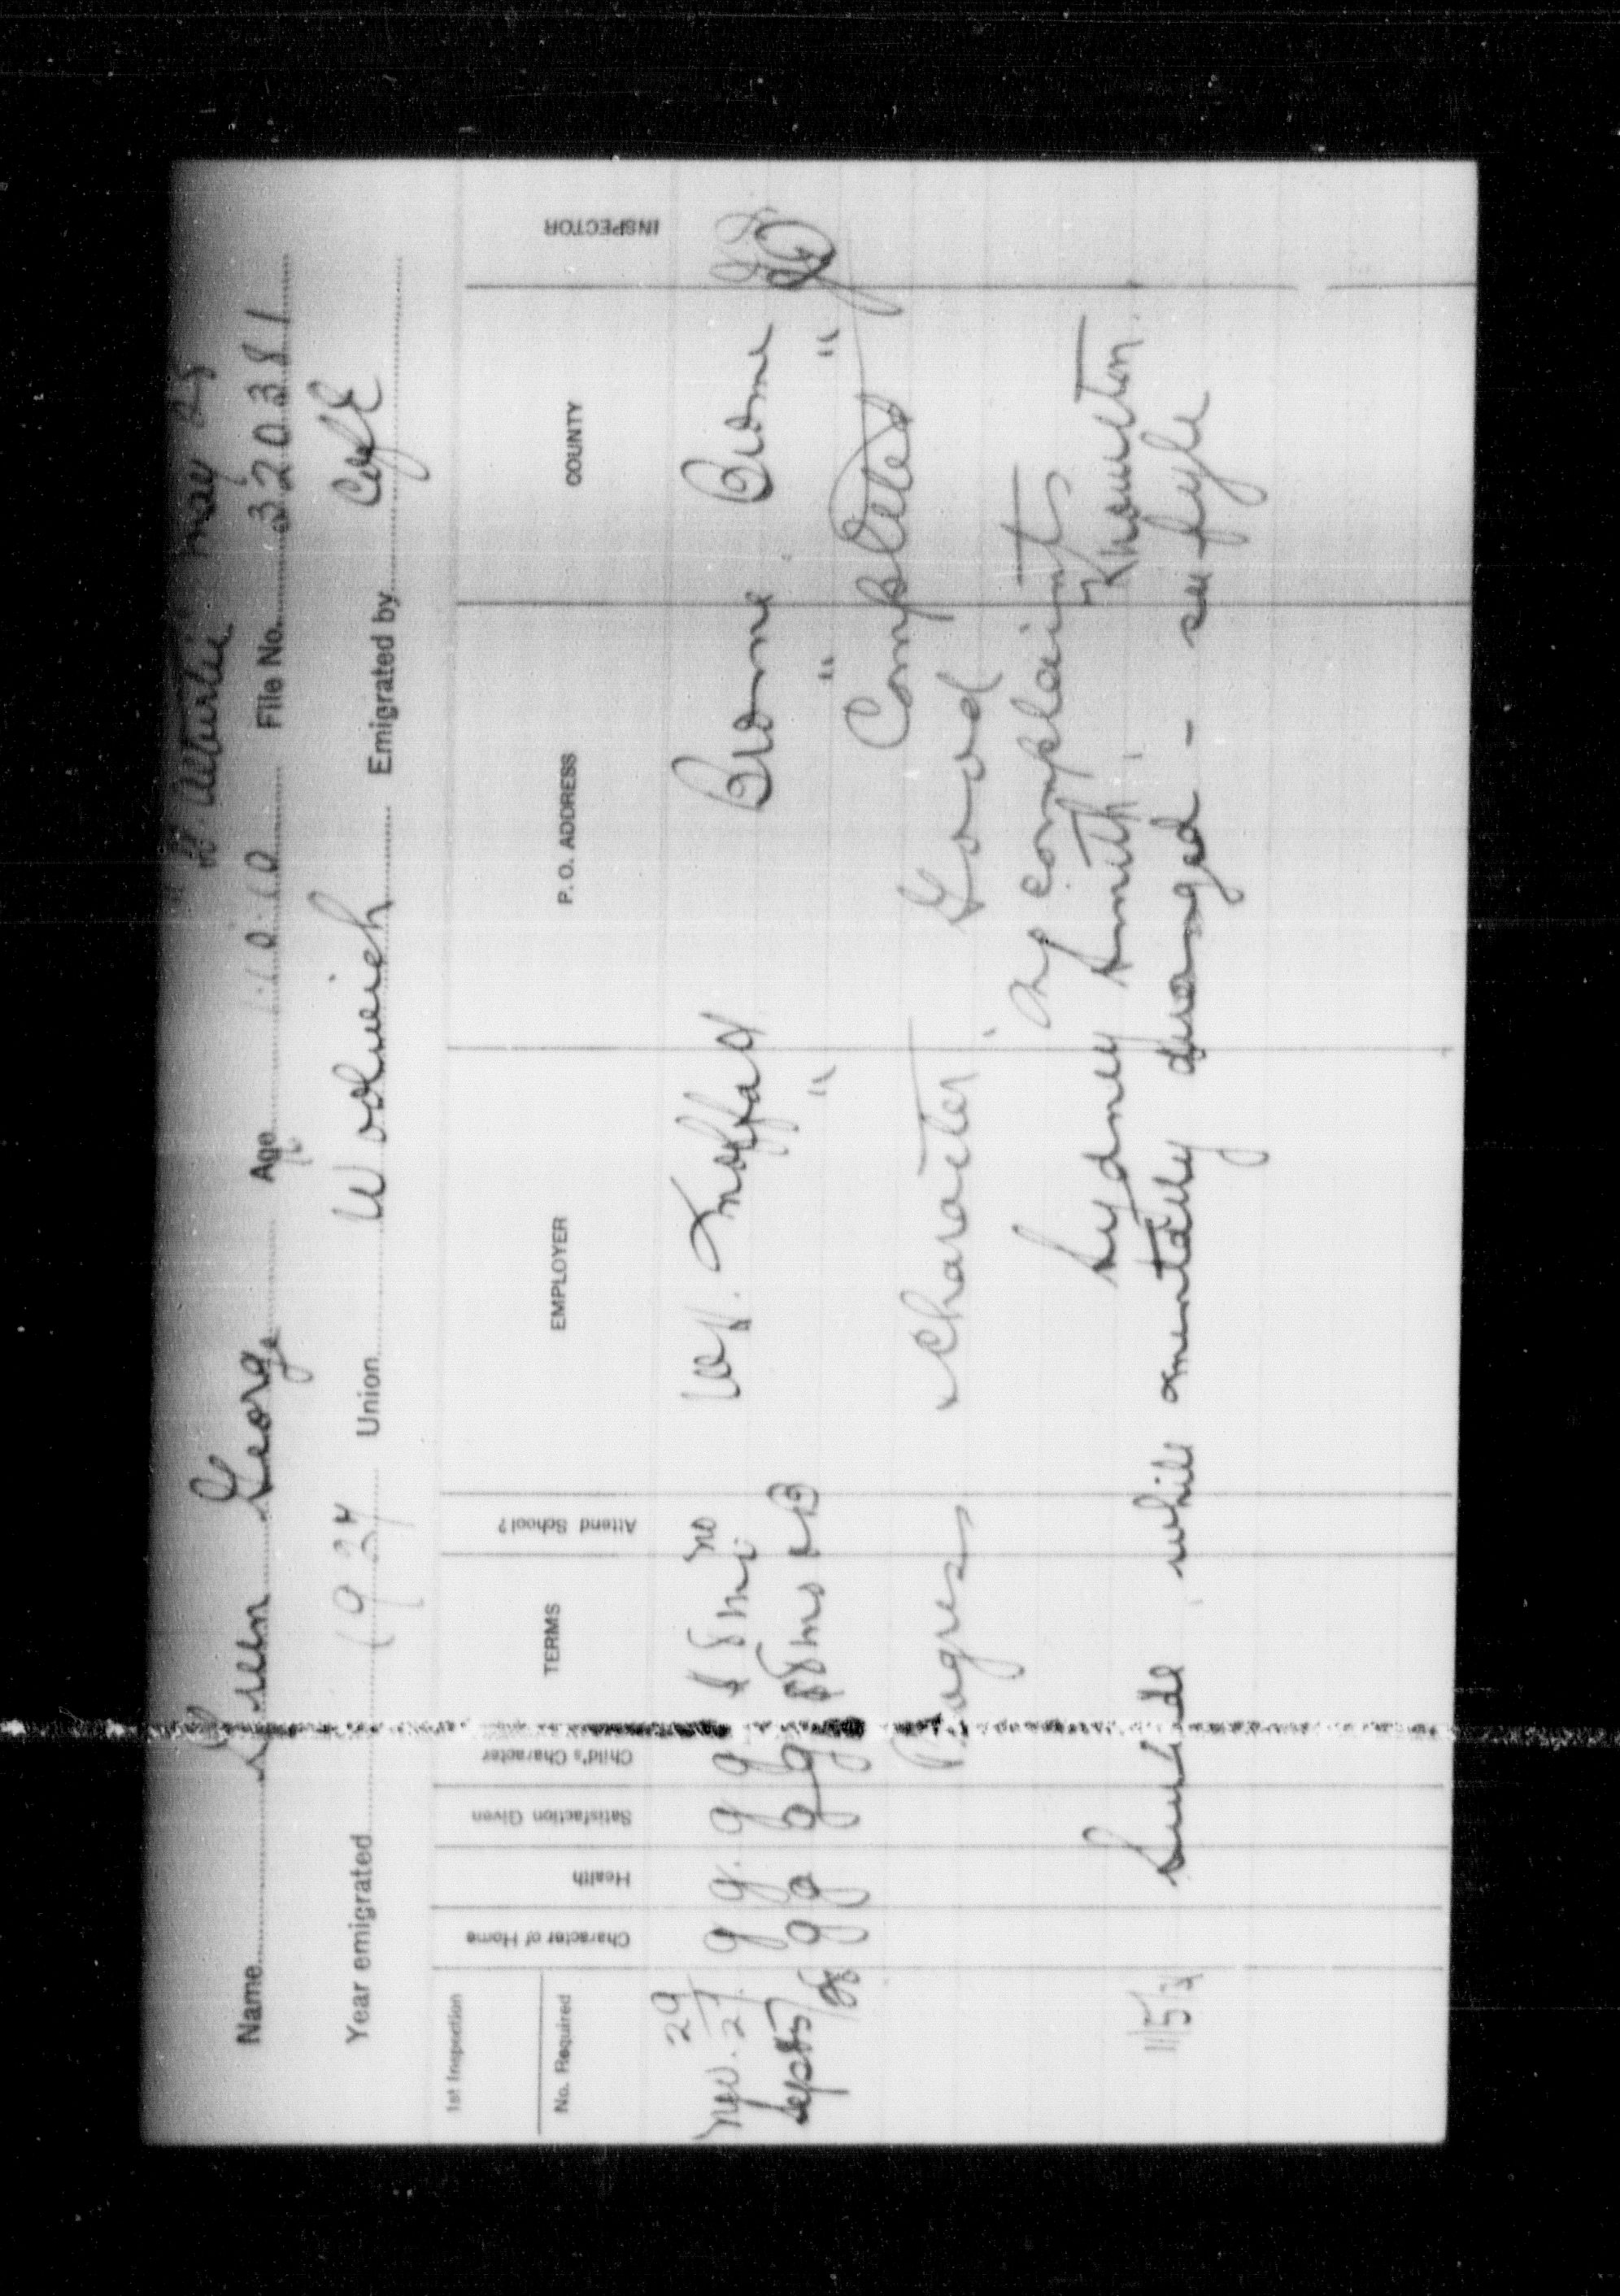 May 28
Name Green George Age File No. 320381
Year emigrated 1927 Union Woolwich Emigrated by C of E
1st Inspection
No. Required
Character of Home
Health
Satisfaction Given
Child's Character
TERMS
Attend School?
EMPLOYER
P. O. ADDRESS
COUNTY
INSPECTOR
Nov. 29/27 g g. g g $8 m no W. Moffat Brome Brome
Sept 5/28 g g g g $8 mo + B " " "
Completed
Progress Character Good
No complaints
Sydney Smith, Knowlton.
Suicide while mentally deranged - see fyle